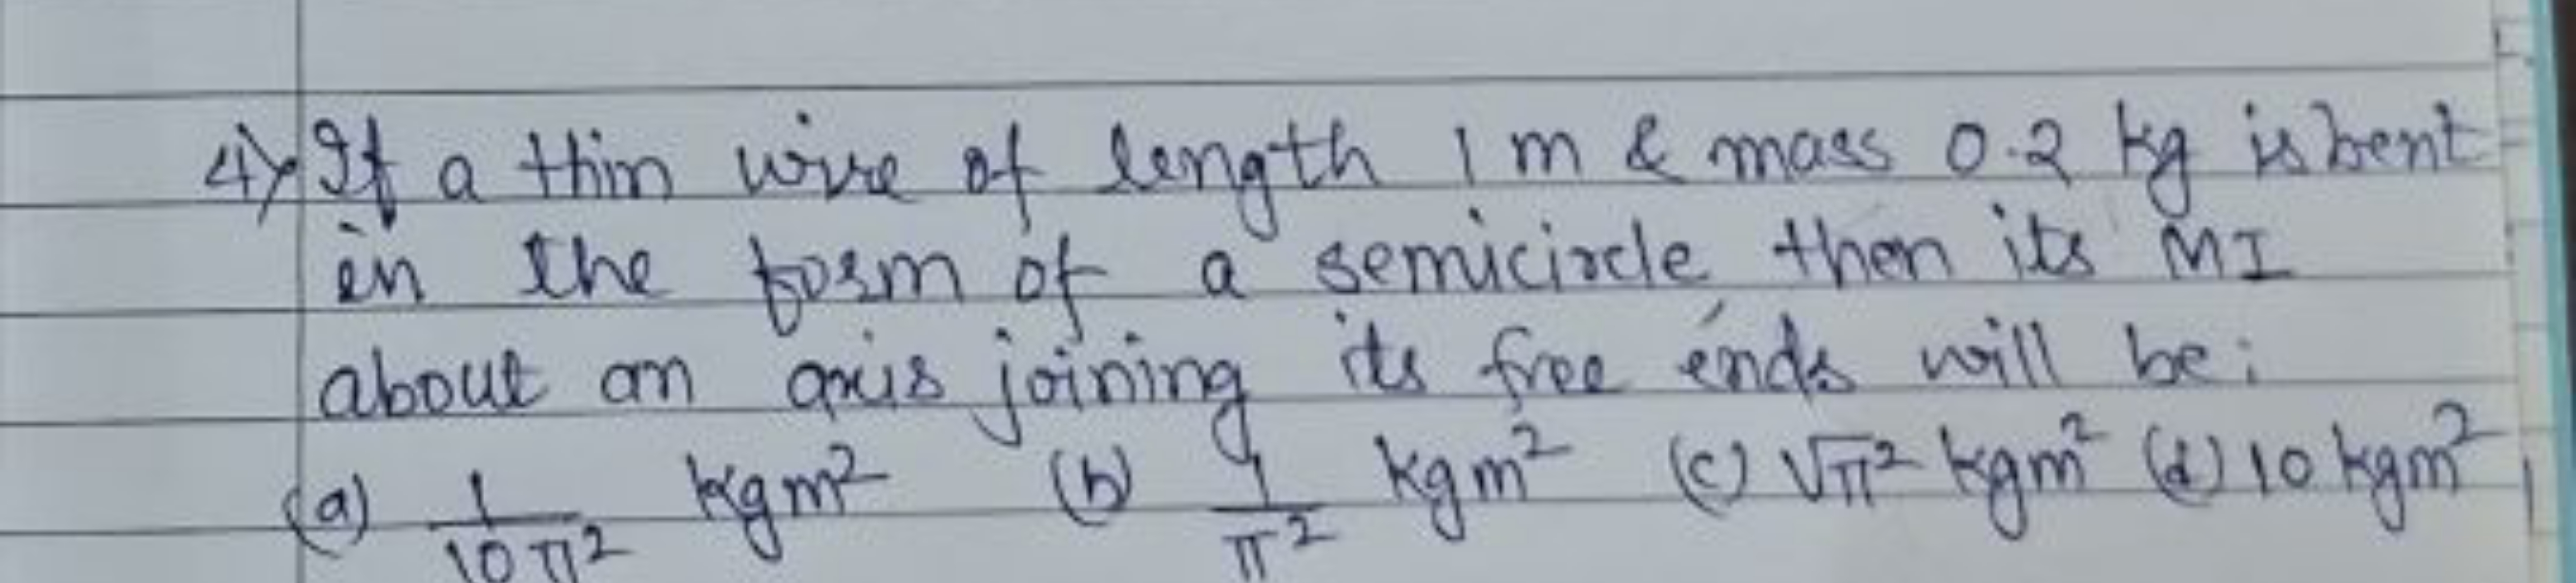 4) If a thin wire of length 1 m & mass 0.2 kg is bent
in the form of a semicircle then its MI
about an axis joining its free ends will be:
(a) 1/10π² kgm² (b) 1/π² kgm² (c) √π² kgm² (d) 10 kgm²